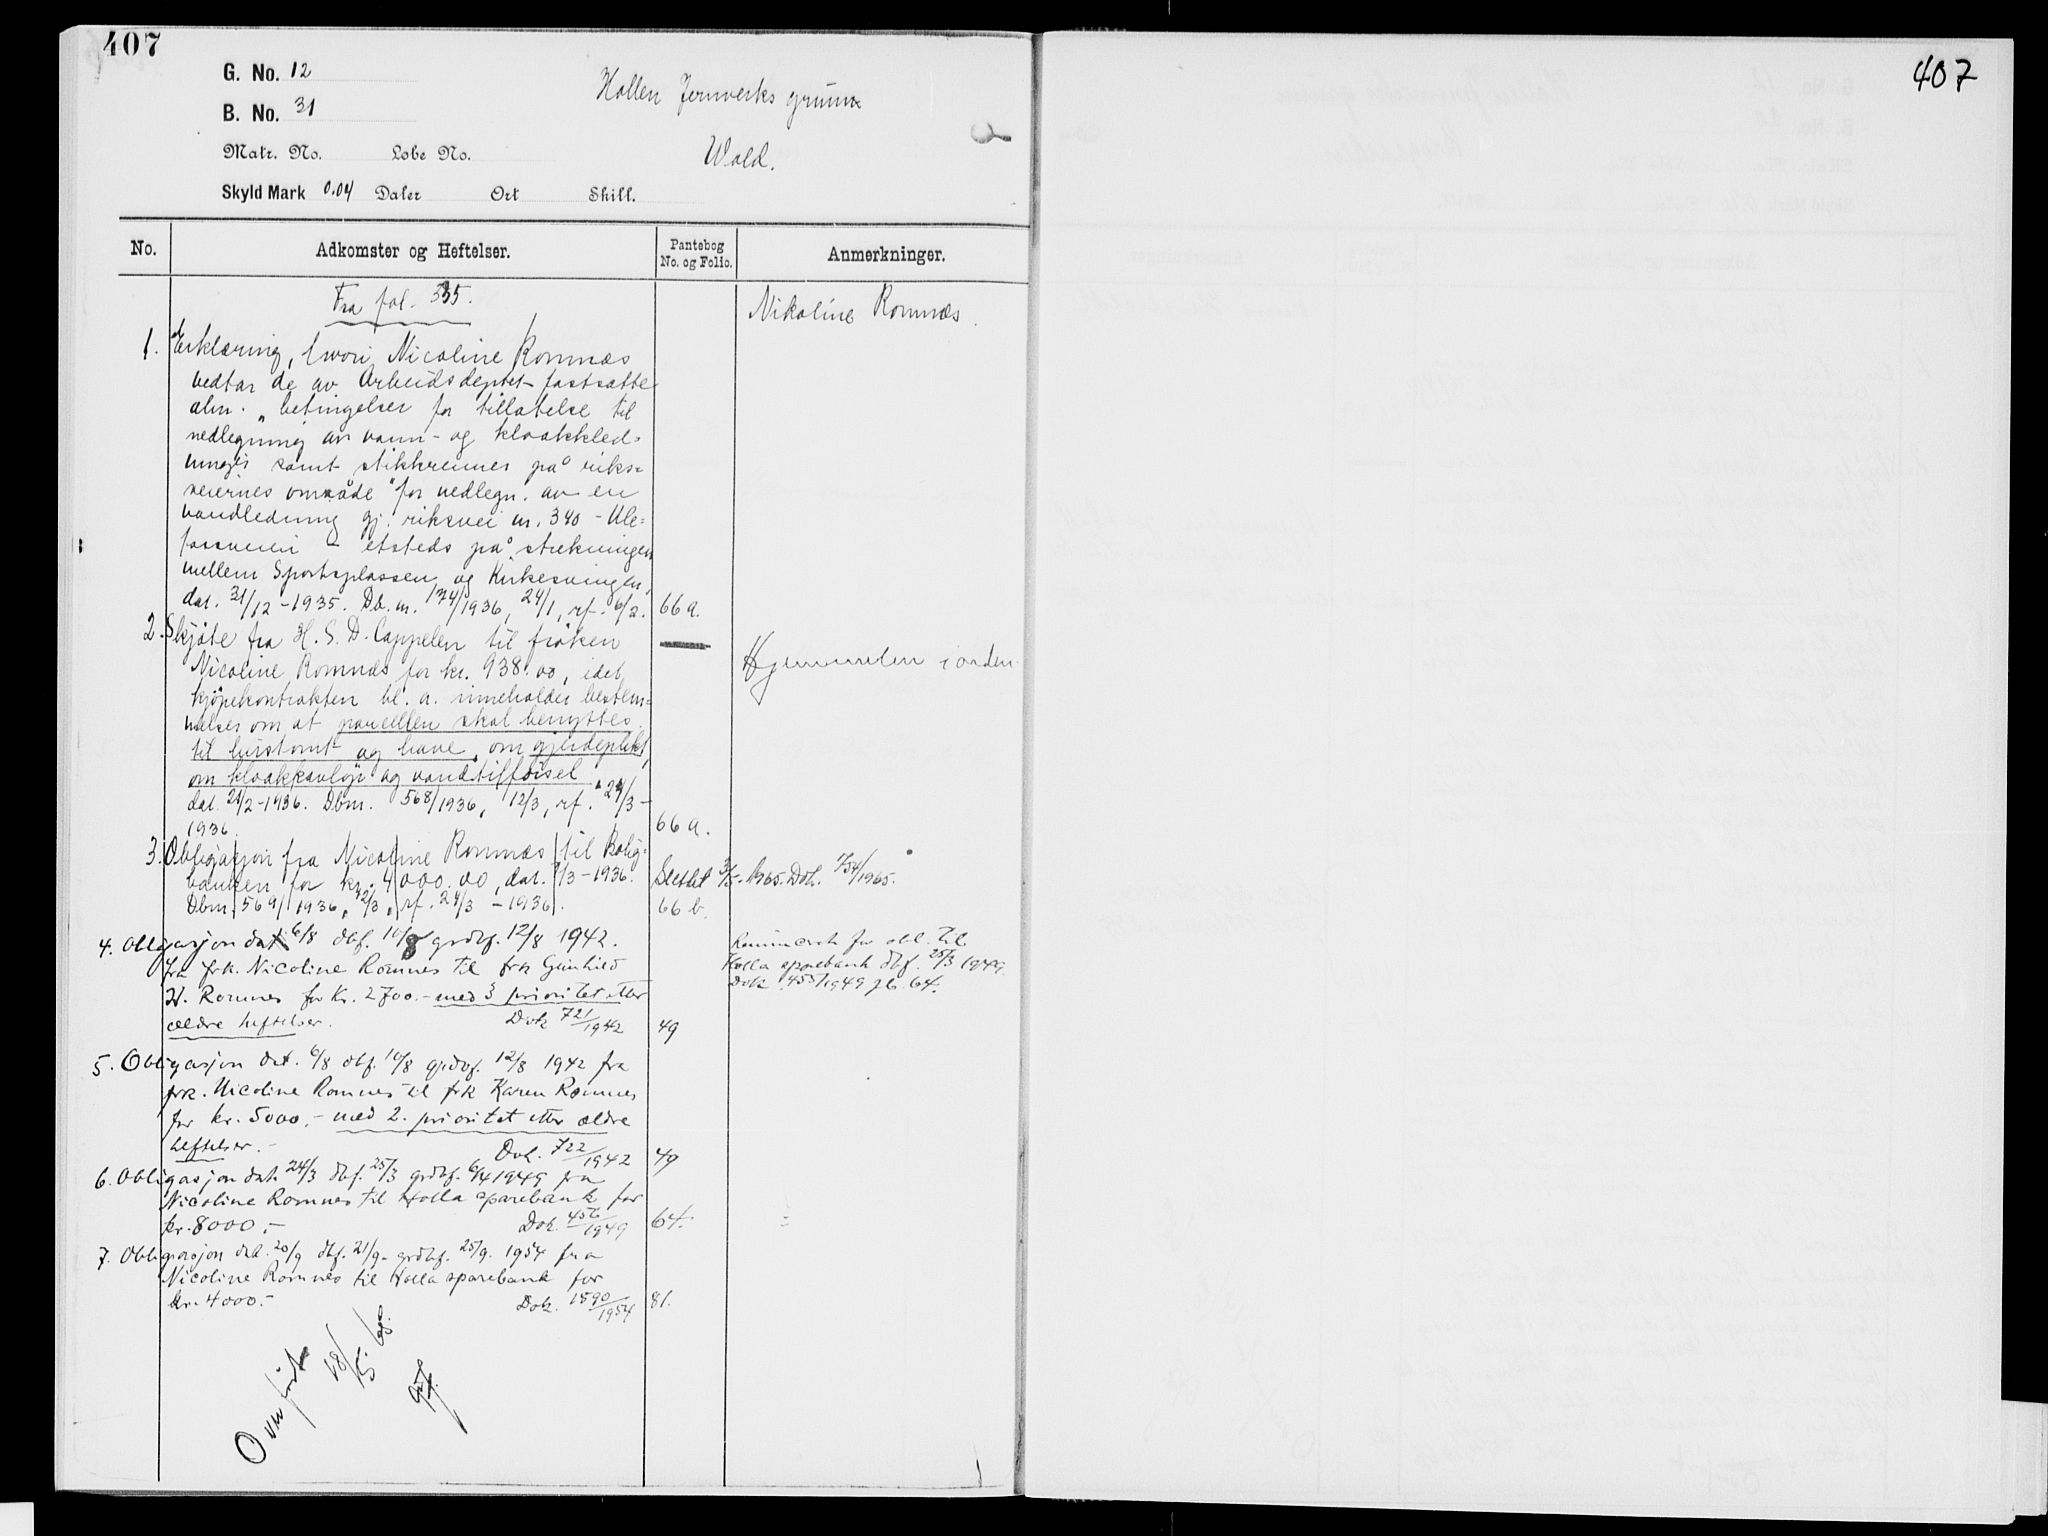 407
G. No. 12
Hollen Jernverks grunn
B. No. 31
Matr. No. Løbe No.
Wold.
Skyld Mark 0.04 Daler Ort Skill.
No. Adkomster og Heftelser. Pantebog No. og Folio. Anmerkninger.
Fra fol. 335.
Nikoline Romnæs.
1. Erklæring, hvori Nicoline Romnæs
vedtar de av Arbeidsdeptet fastsatte
alm. „betingelser for tillatelse til
nedlegning av vann- og kloakkled-
ninger samt stikkrenner på riks-
veiernes område" for nedlegn. av en
vandledning gj. riksvei nr. 340 - Ule-
fossveien - etsteds på strekningen
mellem Sportsplassen og Kirkesvingen,
dat. 31/12-1935. Db.nr. 174/1936, 24/1, rf. 6/2. 66 a.
2. Skjøte fra H. S. D. Cappelen til frøken
Nicoline Romnæs for kr. 938.00, idet
Hjemmelen i orden.
kjøpekontrakten bl. a. inneholder bestem-
melser om at parcellen skal benyttes
til hustomt og have, om gjerdeplikt,
om kloakkavløp og vandtilførsel
dat. 24/2-1936. Dbnr. 568/1936, 12/3, rf. 24/3-
1936. 66 a.
3. Obligasjon fra Nicoline Romnæs til Bolig-
banken for kr. 4000.00, dat. /3-1936. Slettet 3/5-1965. Dok. 754/1965.
Dbnr. 569/1936, 12/3, rf. 24/3-1936. 66 b.
4. Obligasjon dat. 6/8 dbf. 10/8 grdbf. 12/8 1942.
fra frk. Nicoline Romnes til frk Gunhild
H. Romnes for Kr. 2700.- med 3 prioritet etter
ældre heftelser. Dok 721/1942 49
for obl. til
Holla sparebank dbf. 25/3 1949
Dok 455/1949 pb. 64.
5. Obligasjon dat. 6/8 dbf. 10/8 grdbf. 12/8 1942 fra
frk. Nicoline Romnes til frk Karen Romnes
for kr. 5000.- med 2. prioritet etter ældre
heftelser.- Dok. 722/1942 49
6. Obligasjon dat. 24/3 dbf. 25/3 grdbf. 6/4 1949 fra
Nicoline Romnes til Holla sparebank for
kr. 8000.- Dok. 456/1949 64.
7. Obligasjon dat. 20/9 dbf. 21/9- grdbf. 25/9. 1954 fra
Nicoline Romnes til Holla sparebank for
kr. 4000.- Dok. 1590/1954 81.
Overført
18/5 65.
407